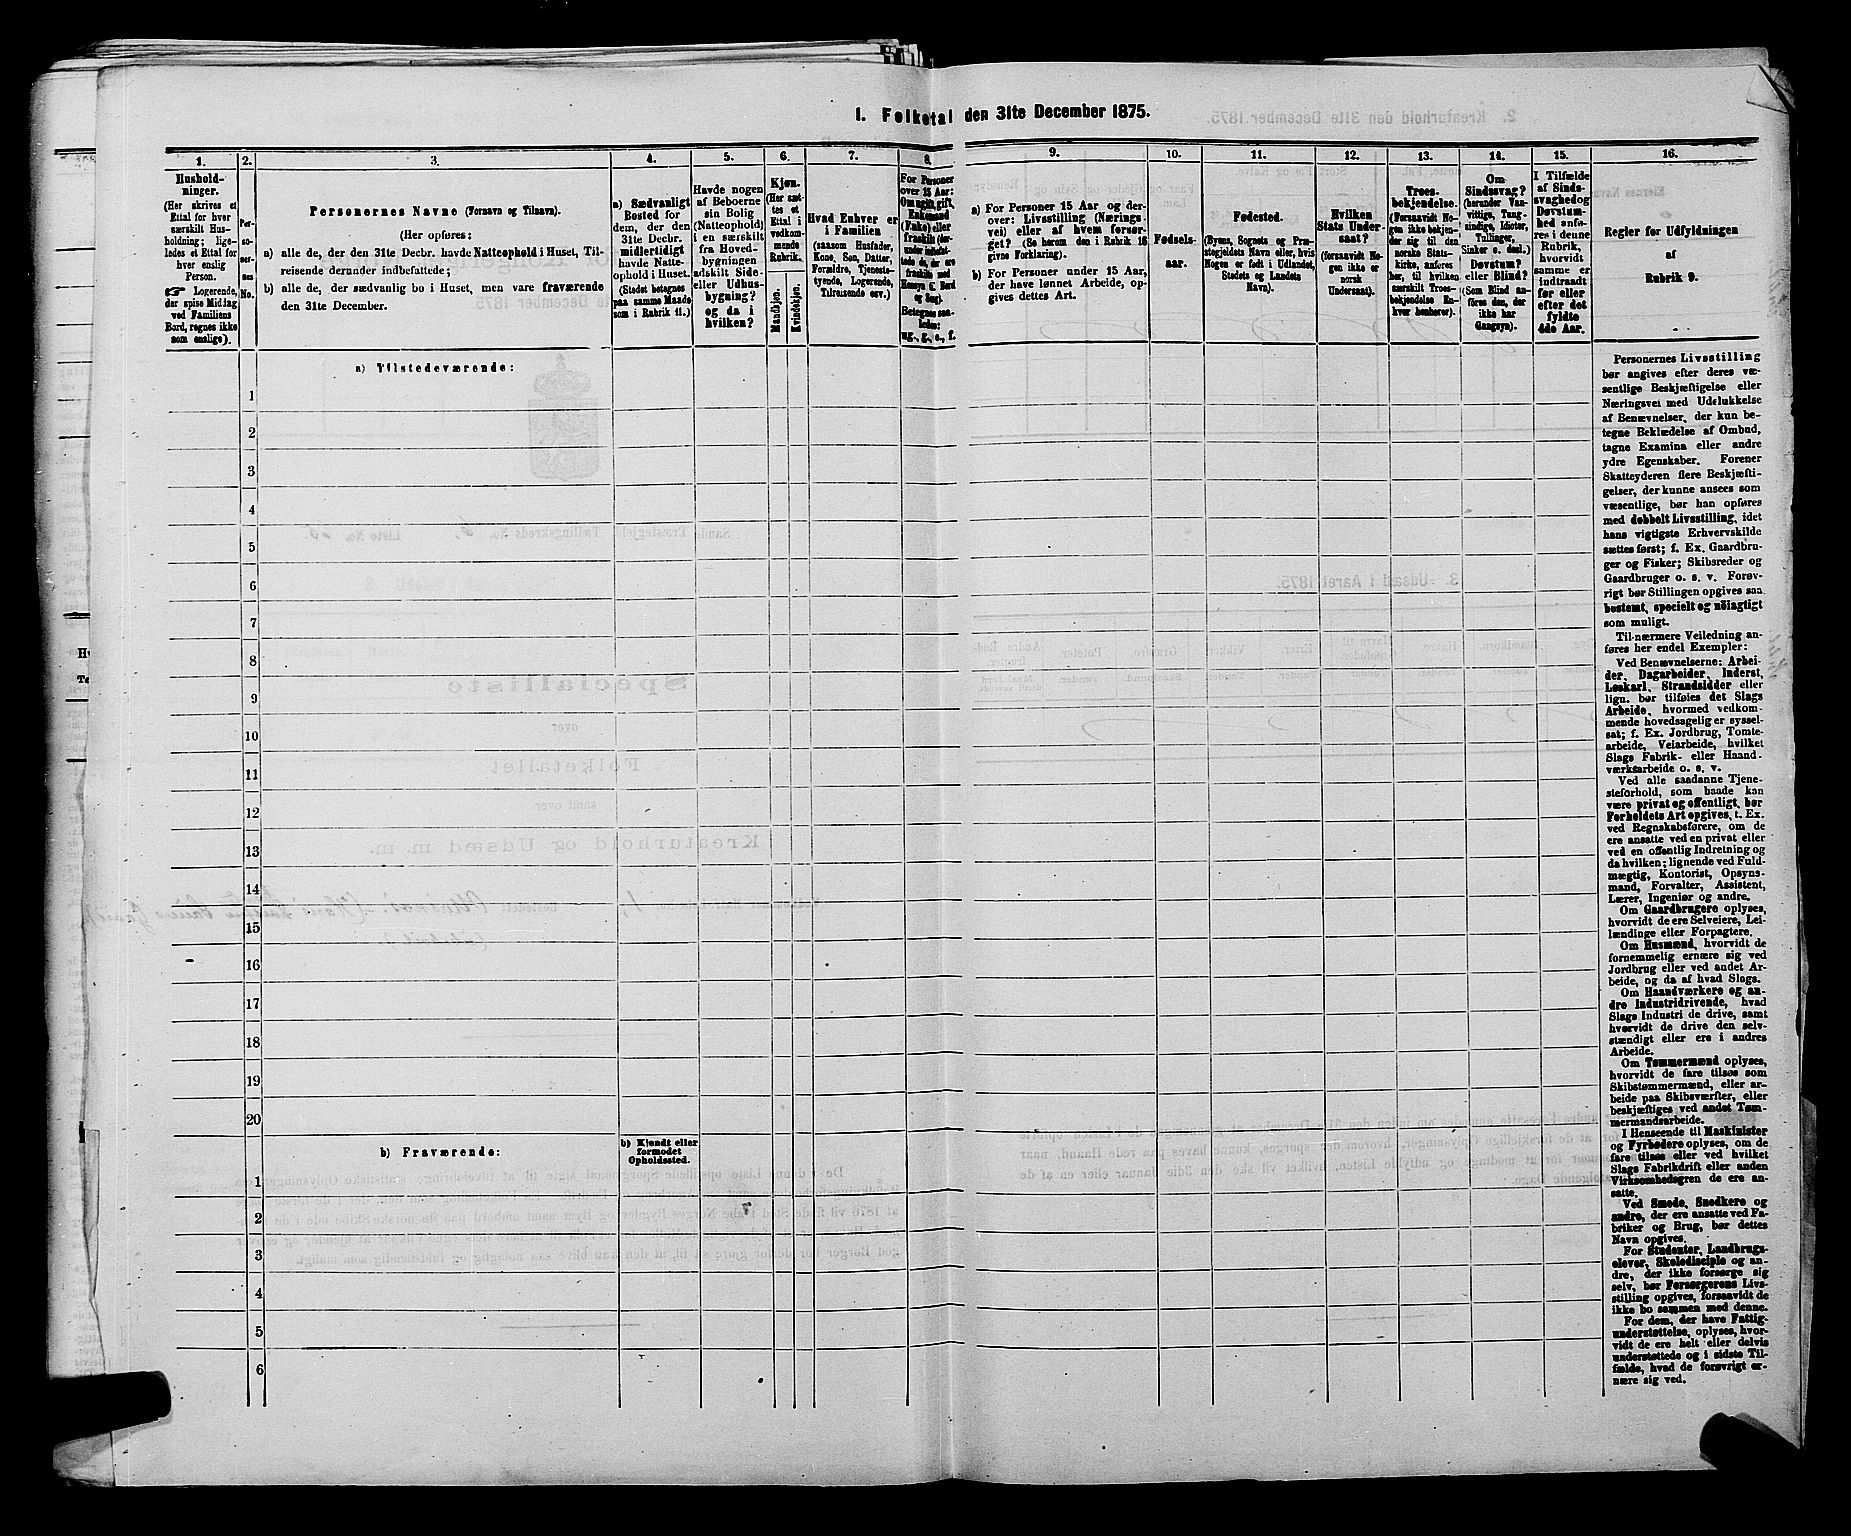 1. Folketal den 31te December 1875.
1.
Hushold-
ninger.
(Her skrives et
Ettal for hver
særskilt Hus-
holdning; lige-
ledes et Ettal for
hver enslig
Person.
☞ Logerende,
der spise Middag
ved Familiens
Bord, regnes ikke
som enslige).
2.
Per-
so-
ner-
nes
No.
3.
Personernes Navne (Fornavn og Tilnavn).
(Her opføres:
a) alle de, der den 31te Decbr. havde Natteophold i Huset, Til-
reisende derunder indbefattede;
b) alle de, der sædvanlig bo i Huset, men vare fraværende
den 31te December.
4.
a) Sædvanligt
Bosted for
dem, der den
31te Decbr.
midlertidigt
havde Natte-
ophold i Huset.
(Stedet betegnes
paa samme Maade
som i Rubrik 11.)
5.
Havde nogen
af Beboerne
sin Bolig
(Natteophold)
i en særskilt
fra Hoved-
bygningen
adskilt Side-
eller Udhus-
bygning?
og da i
hvilken?
6.
Kjøn.
(Her sæt-
tes et
Ettal i
vedkom-
mende
Rubrik.
Mandkjøn.
Kvindekjøn.
7.
Hvad Enhver er
i Familien
(saasom Husfader,
Kone, Søn, Datter,
Forældre, Tjeneste-
tyende, Logerende,
Tilreisende osv.)
8.
For Personer
over 15 Aar:
Om ugift, gift,
Enkemand
(Enke) eller
fraskilt (der-
under indbefat-
tede de, der ere
fraskilte med
Hensyn t. Bord
og Seng).
Betegnes saa-
ledes:
ug., g., e., f.
9.
a) For Personer 15 Aar og der-
over: Livsstilling (Nærings-
vei) eller af hvem forsør-
get? (Se herom den i Rubrik 16
givne Forklaring).
b) For Personer under 15 Aar,
der have lønnet Arbeide, op-
gives dettes Art.
10.
Fødsels-
aar.
11.
Fødested.
(Byens, Sognets og Præ-
stegjeldets Navn eller, hvis
Nogen er født i Udlandet,
Stedets og Landets
Navn).
12.
Hvilken
Stats Under-
saat?
(forsaavidt No-
gen ikke er
norsk
Undersaat).
13.
Troes-
bekjendelse.
(Forsaavidt No-
gen ikke bekjen-
der sig til den
norske Stats-
kirke, anføres
her, til hvilken
særskilt Troes-
bekjendelse En-
hver henhører).
14.
Om
Sindssvag?
(herunder Van-
vittige, Tung-
sindige, Idioter,
Tullinger,
Sinker o. desl.)
Døvstum?
eller Blind?
(Som Blind an-
føres den, der
ikke har
Gangsyn).
15.
I Tilfælde
af Sinds-
svaghed og
Døvstum-
hed anfø-
res i denne
Rubrik,
hvorvidt
samme er
indtraadt
før eller
efter det
fyldte
4de Aar.
16.
Regler for Udfyldningen
af
Rubrik 9.
a) Tilstedeværende:
1
2
3
4
5
6
7
8
9
10
11
12
13
14
15
16
17
18
19
20
b) Fraværende:
b) Kjendt eller
formodet
Opholdssted.
1
2
3
4
5
6
Personernes Livsstilling
bør angives efter deres væ-
sentlige Beskjæftigelse eller
Næringsvei med Udelukkelse
af Benævnelser, der kun be-
tegne Beklædelse af Ombud,
tagne Examina eller andre
ydre Egenskaber. Forener
Skatteyderen flere Beskjæfti-
gelser, der kunne ansees som
væsentlige, bør han opføres
med dobbelt Livsstilling, idet
hans vigtigste Erhvervskilde
sættes først; f. Ex. Gaardbru-
ger og Fisker; Skibsreder og
Gaardbruger o. s. v. Forøv-
rigt bør Stillingen opgives saa
bestemt, specielt og nöiagtigt
som muligt.
Til nærmere Veiledning an-
føres her endel Exempler:
Ved Benævnelserne: Arbei-
der, Dagarbeider, Inderst,
Løskarl, Strandsidder eller
lign. bør tilføies det Slags
Arbeide, hvormed vedkom-
mende hovedsagelig er syssel-
sat; f. Ex. Jordbrug, Tomte-
arbeide, Veiarbeide, hvilket
Slags Fabrik- eller Haand-
værksarbeide o. s. v.
Ved alle saadanne Tjene-
steforhold, som baade kan
være privat og offentligt, bør
Forholdets Art opgives, t. Ex.
ved Regnskabsførere, om de
ere ansatte ved en privat eller
ved en offentlig Indretning og
da hvilken; lignende ved Fuld-
mægtig, Kontorist, Opsyns-
mand, Forvalter, Assistent,
Lærer, Ingeniør og andre.
Om Gaardbrugere oplyses,
hvorvidt de ere Selveiere, Lei-
lændinge eller Forpagtere.
Om Husmænd, hvorvidt de
fornemmelig ernære sig ved
Jordbrug eller ved andet Ar-
beide, og da af hvad Slags.
Om Haandværkere og an-
dre Industridrivende, hvad
Slags Industri de drive, samt
hvorvidt de drive den selv-
stændigt eller ere i andres
Arbeide.
Om Tømmermænd oplyses,
hvorvidt de fare tilsøs som
Skibstømmermænd, eller ar-
beide paa Skibsværfter, eller
beskjæftiges ved andet Tøm-
mermandsarbeide.
I Henseende til Maskinister
og Fyrbødere oplyses, om de
fare tilsøs eller ved hvilket
Slags Fabrikdrift eller anden
Virksomhedsgren de ere an-
satte.
Ved Smede, Snedkere og
andre, der ere ansatte ved Fa-
briker og Brug, bør dettes
Navn opgives.
For Studenter, Landbrugs-
elever, Skoledisciple og an-
dre, der ikke forsørge sig
selv, bør Forsørgerens Livs-
stilling opgives, forsaavidt de
ikke bo sammen med denne.
For dem, der have Fattig-
understøttelse, oplyses, hvor-
vidt de ere helt eller delvis
understøttede og i sidste Til-
fælde, hvad de forøvrigt er-
nære sig ved.